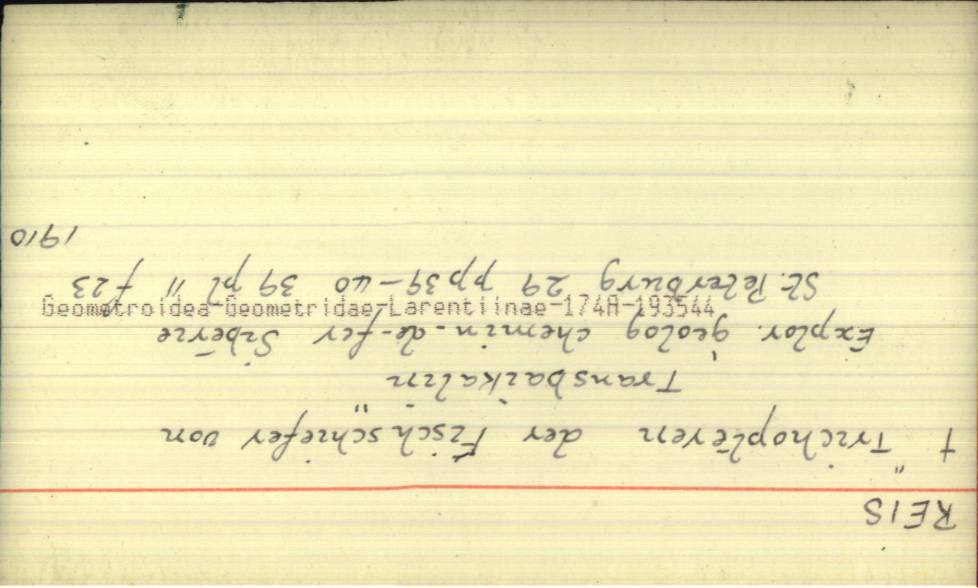 REIS
† "Trichopteren der Fischschiefer von
Transbaikalin"
Explor. géolog chemin-de-fer Sibérie
St. Peterburg 29 pp 39-40 39 pl II f 23
1910
Geometroidea-Geometridae-Larentiinae-174A-193544